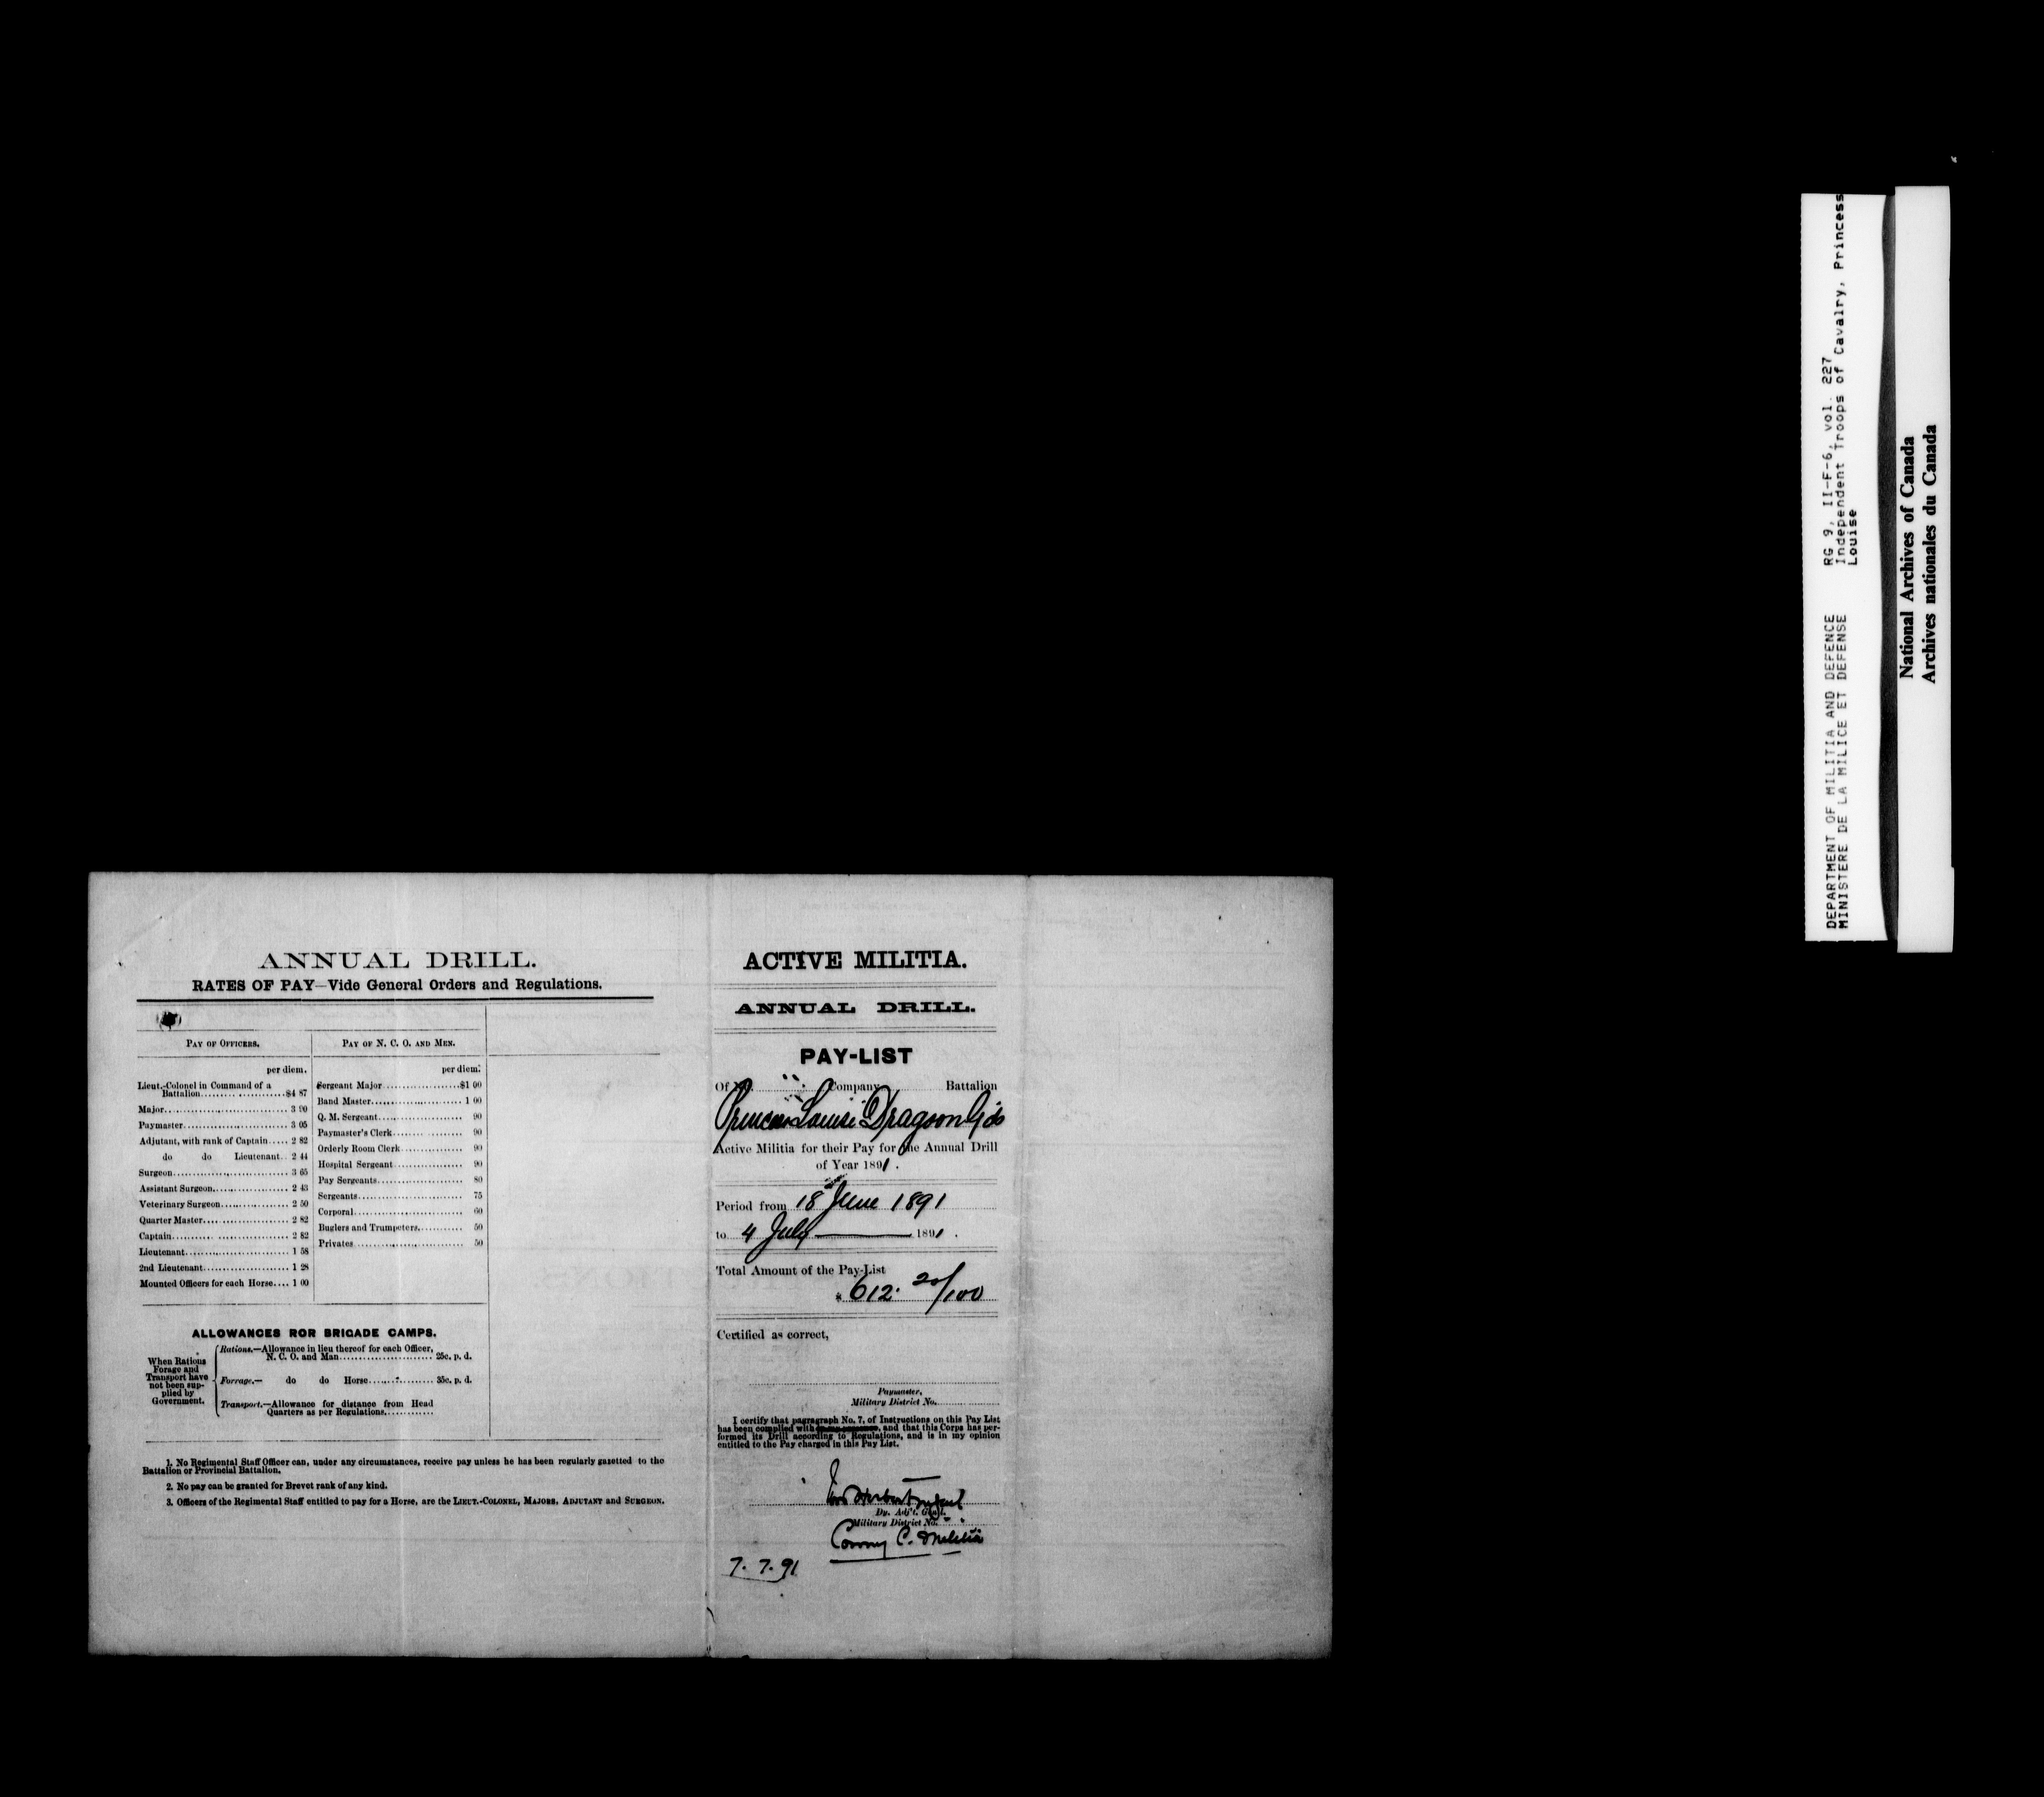 ANNUAL DRILL.
RATES OF PAY—Vide General Orders and Regulations.
PAY OF OFFICERS.
per diem.
Lieut.-Colonel in Command of a
Battalion....................$4 87
Major....................3 90
Paymaster....................3 05
Adjutant, with rank of Captain.....2 82
do do Lieutenant..2 44
Surgeon....................3 65
Assistant Surgeon....................2 43
Veterinary Surgeon....................2 50
Quarter Master....................2 82
Captain....................2 82
Lieutenant....................1 58
2nd Lieutenant....................1 28
Mounted Officers for each Horse....1 00
PAY OF N. C. O. AND MEN.
per diem.
Sergeant Major....................$1 00
Band Master....................1 00
Q. M. Sergeant....................90
Paymaster's Clerk....................90
Orderly Room Clerk....................90
Hospital Sergeant....................90
Pay Sergeants....................80
Sergeants....................75
Corporal....................60
Buglers and Trumpeters...........50
Privates....................50
ALLOWANCES ROR BRIGADE CAMPS.
When Rations
Forage and
Transport have
not been sup-
plied by
Government.
Rations.—Allowance in lieu thereof for each Officer,
N. C. O. and Man....................25c. p. d.
Forrage.— do do Horse...............35c. p. d.
Transport.—Allowance for distance from Head
Quarters as per Regulations............
1. No Regimental Staff Officer can, under any circumstances, receive pay unless he has been regularly gazetted to the
Battalion or Provincial Battalion.
2. No pay can be granted for Brevet rank of any kind.
3. Officers of the Regimental Staff entitled to pay for a Horse, are the LIEUT.-COLONEL, MAJORS, ADJUTANT and SURGEON.
ACTIVE MILITIA.
ANNUAL DRILL.
PAY-LIST
Of No. Company Battalion
Princess Louise Dragoon Gds
Active Militia for their Pay for the Annual Drill
of Year 1891.
Period from 18 June 1891
to 4 July 1891.
Total Amount of the Pay-List
$ 612. 20/100
Certified as correct,
Paymaster,
Military District No.
I certify that paragraph No. 7, of Instructions on this Pay List
has been complied with, and that this Corps has per-
formed its Drill according to Regulations, and is in my opinion
entitled to the Pay charged in this Pay List.
Herbert
Dy. Adj't. Gen'l.
Military District No.
Comg C. Militia
7. 7. 91
DEPARTMENT OF MILITIA AND DEFENCE
MINISTERE DE LA MILICE ET DEFENSE
RG 9, II-F-6, vol. 227
Independent Troops of Cavalry, Princess
Louise
National Archives of Canada
Archives nationales du Canada